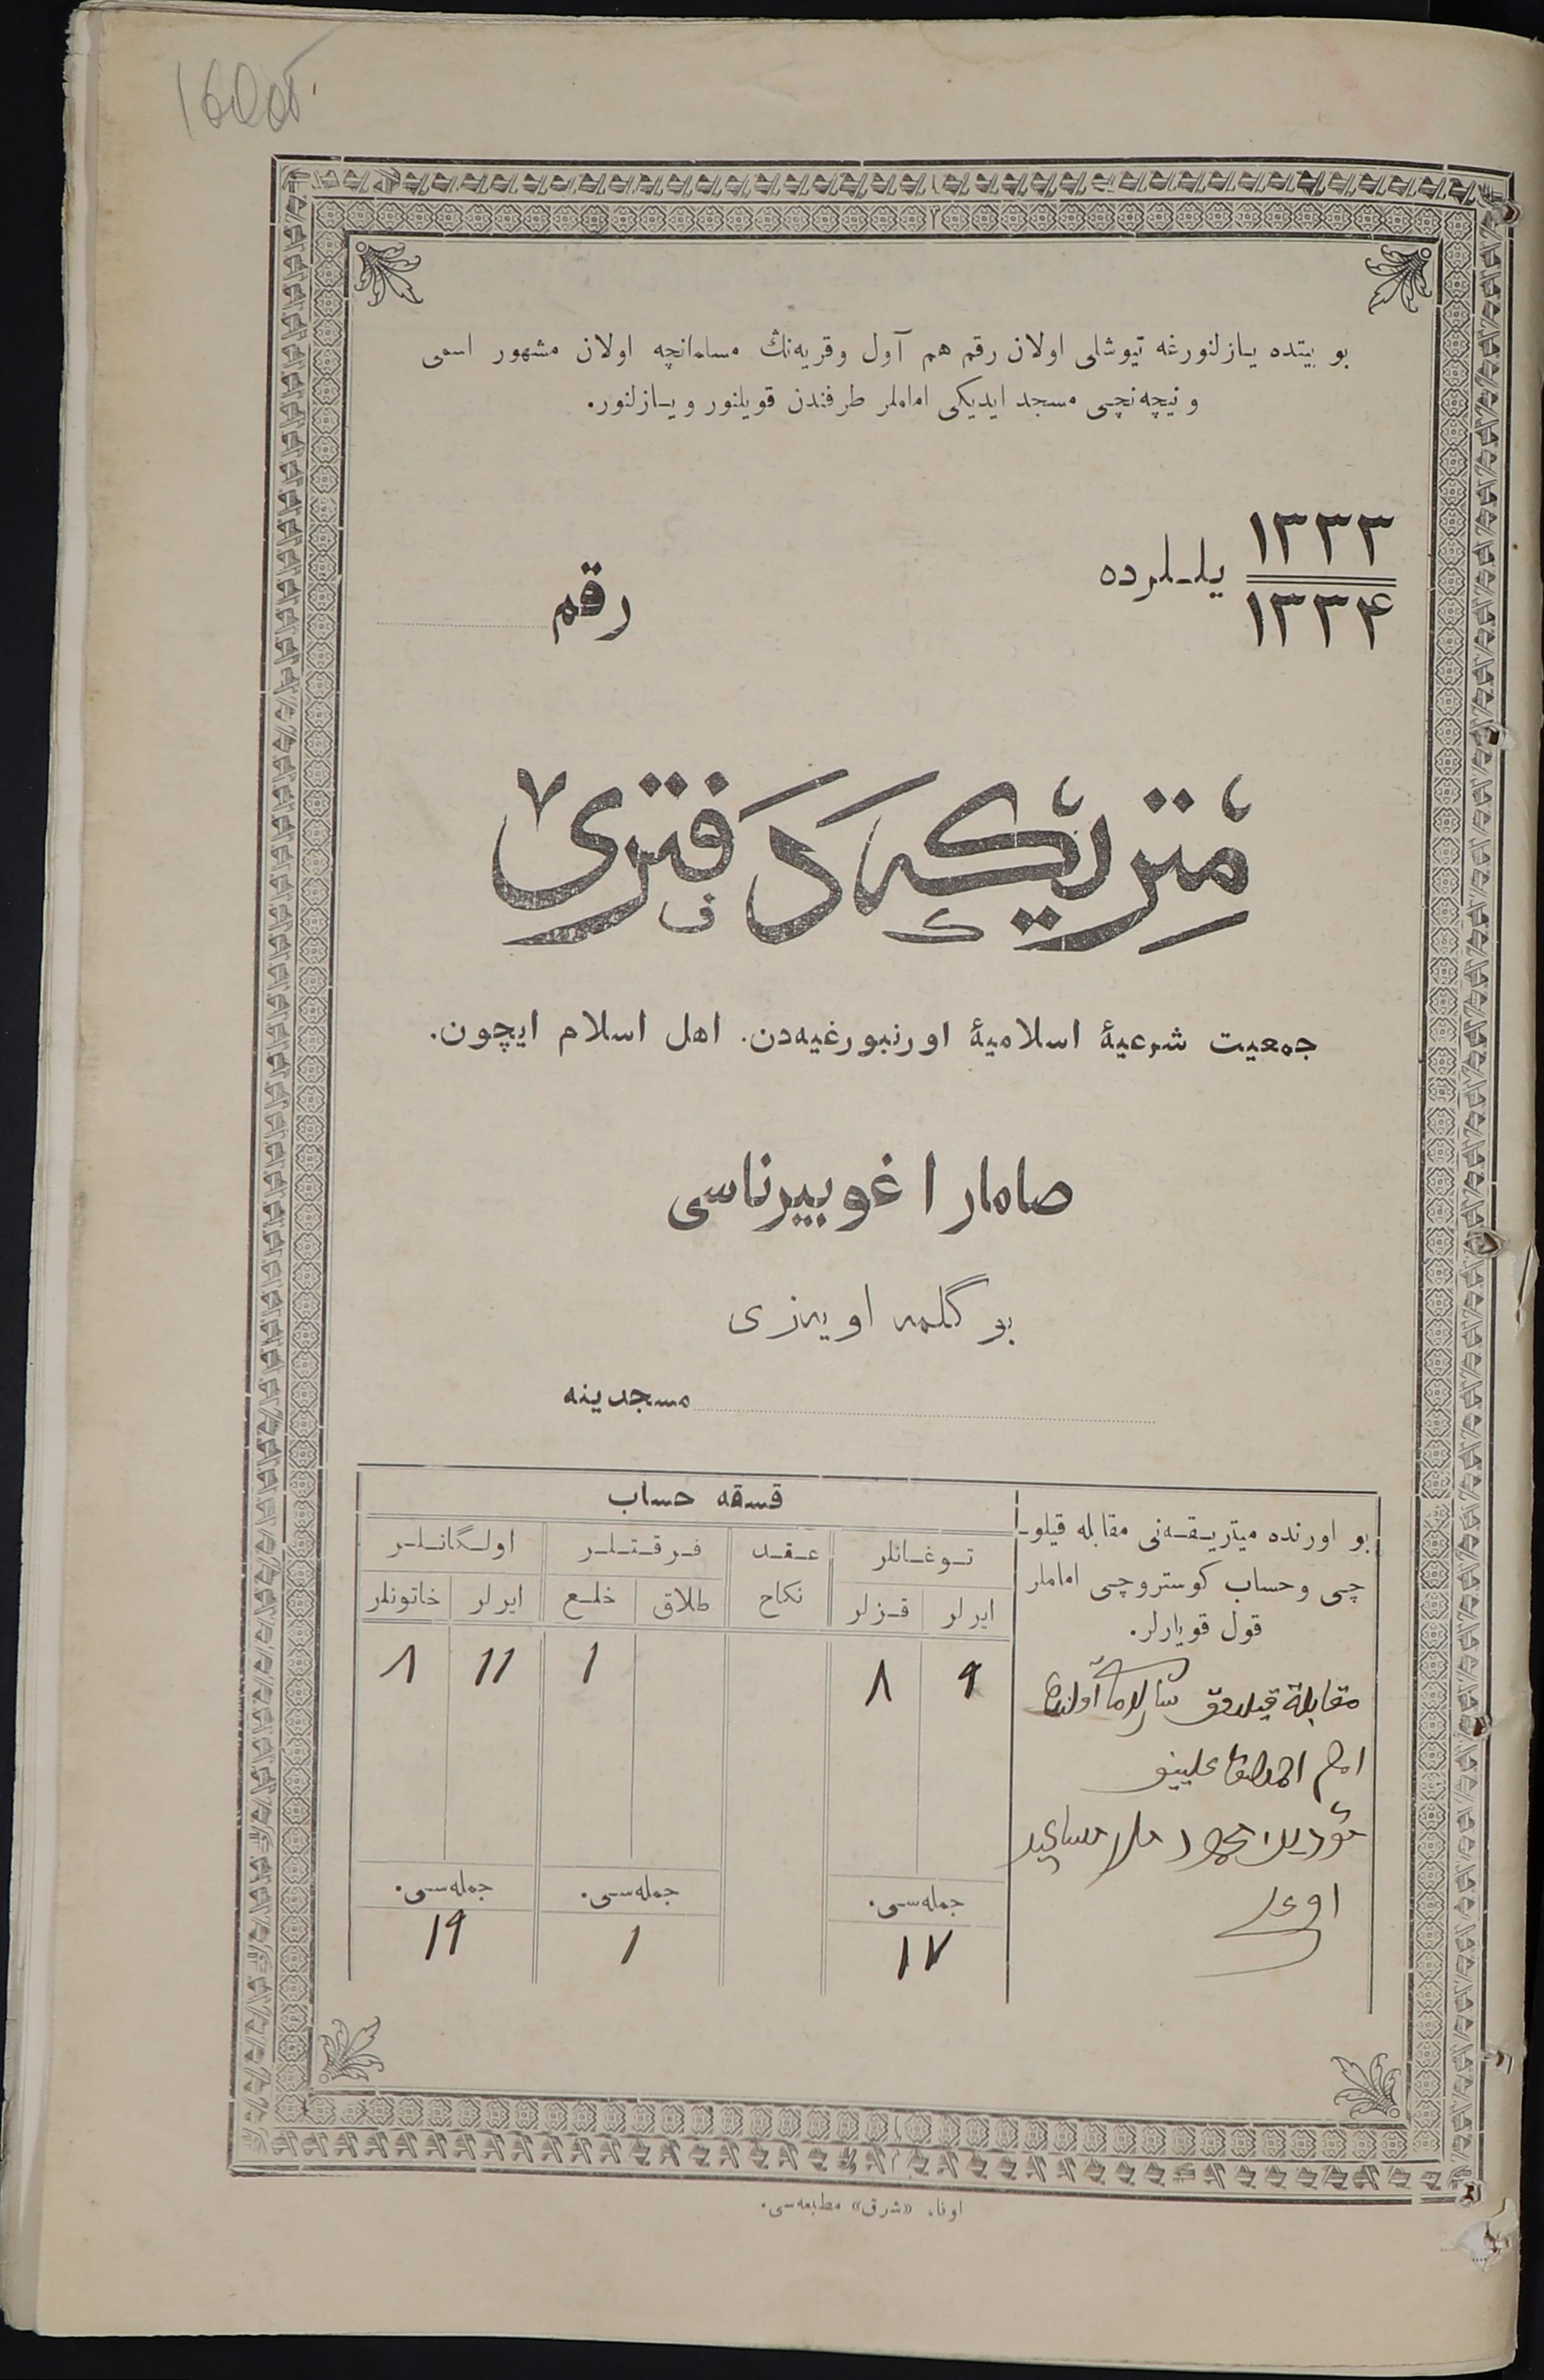 160об
بو بیتده یازلنورغه تیوشلی اولان رقم هم آول وقریه‌نڭ مسلمانچه اولان مشهور اسمی
و نیچه‌نچی مسجد ایدیکی اماملر طرفندن قویلنور و یازلنور.
۱۳۳۳
۱۳۳۴
یللرده
رقم
مٔتریکه دفتری
جمعیت شرعیهٔ اسلامیهٔ اورنبورغیه‌دن. اهل اسلام ایچون.
صامارا غوبیرناسی
بوگلمه اویه‌زی
مسجدینه
بو اورنده میتریقه‌نی مقابله قیلو-
چی وحساب کوستروچی اماملر
قول قویارلر.
مقابلة قیلدوق
امام
محمود
اوغلی
قسقه حساب
توغانلر
عقد
نکاح
فرقتلر
اولگانلر
ایرلر
قزلر
طلاق
خلع
ایرلر
خاتونلر
۹
۸
۱
۱۱
۸
جمله‌سی.
جمله‌سی.
جمله‌سی.
۱۷
۱
۱۹
اوفا، «شرق» مطبعه‌سی.